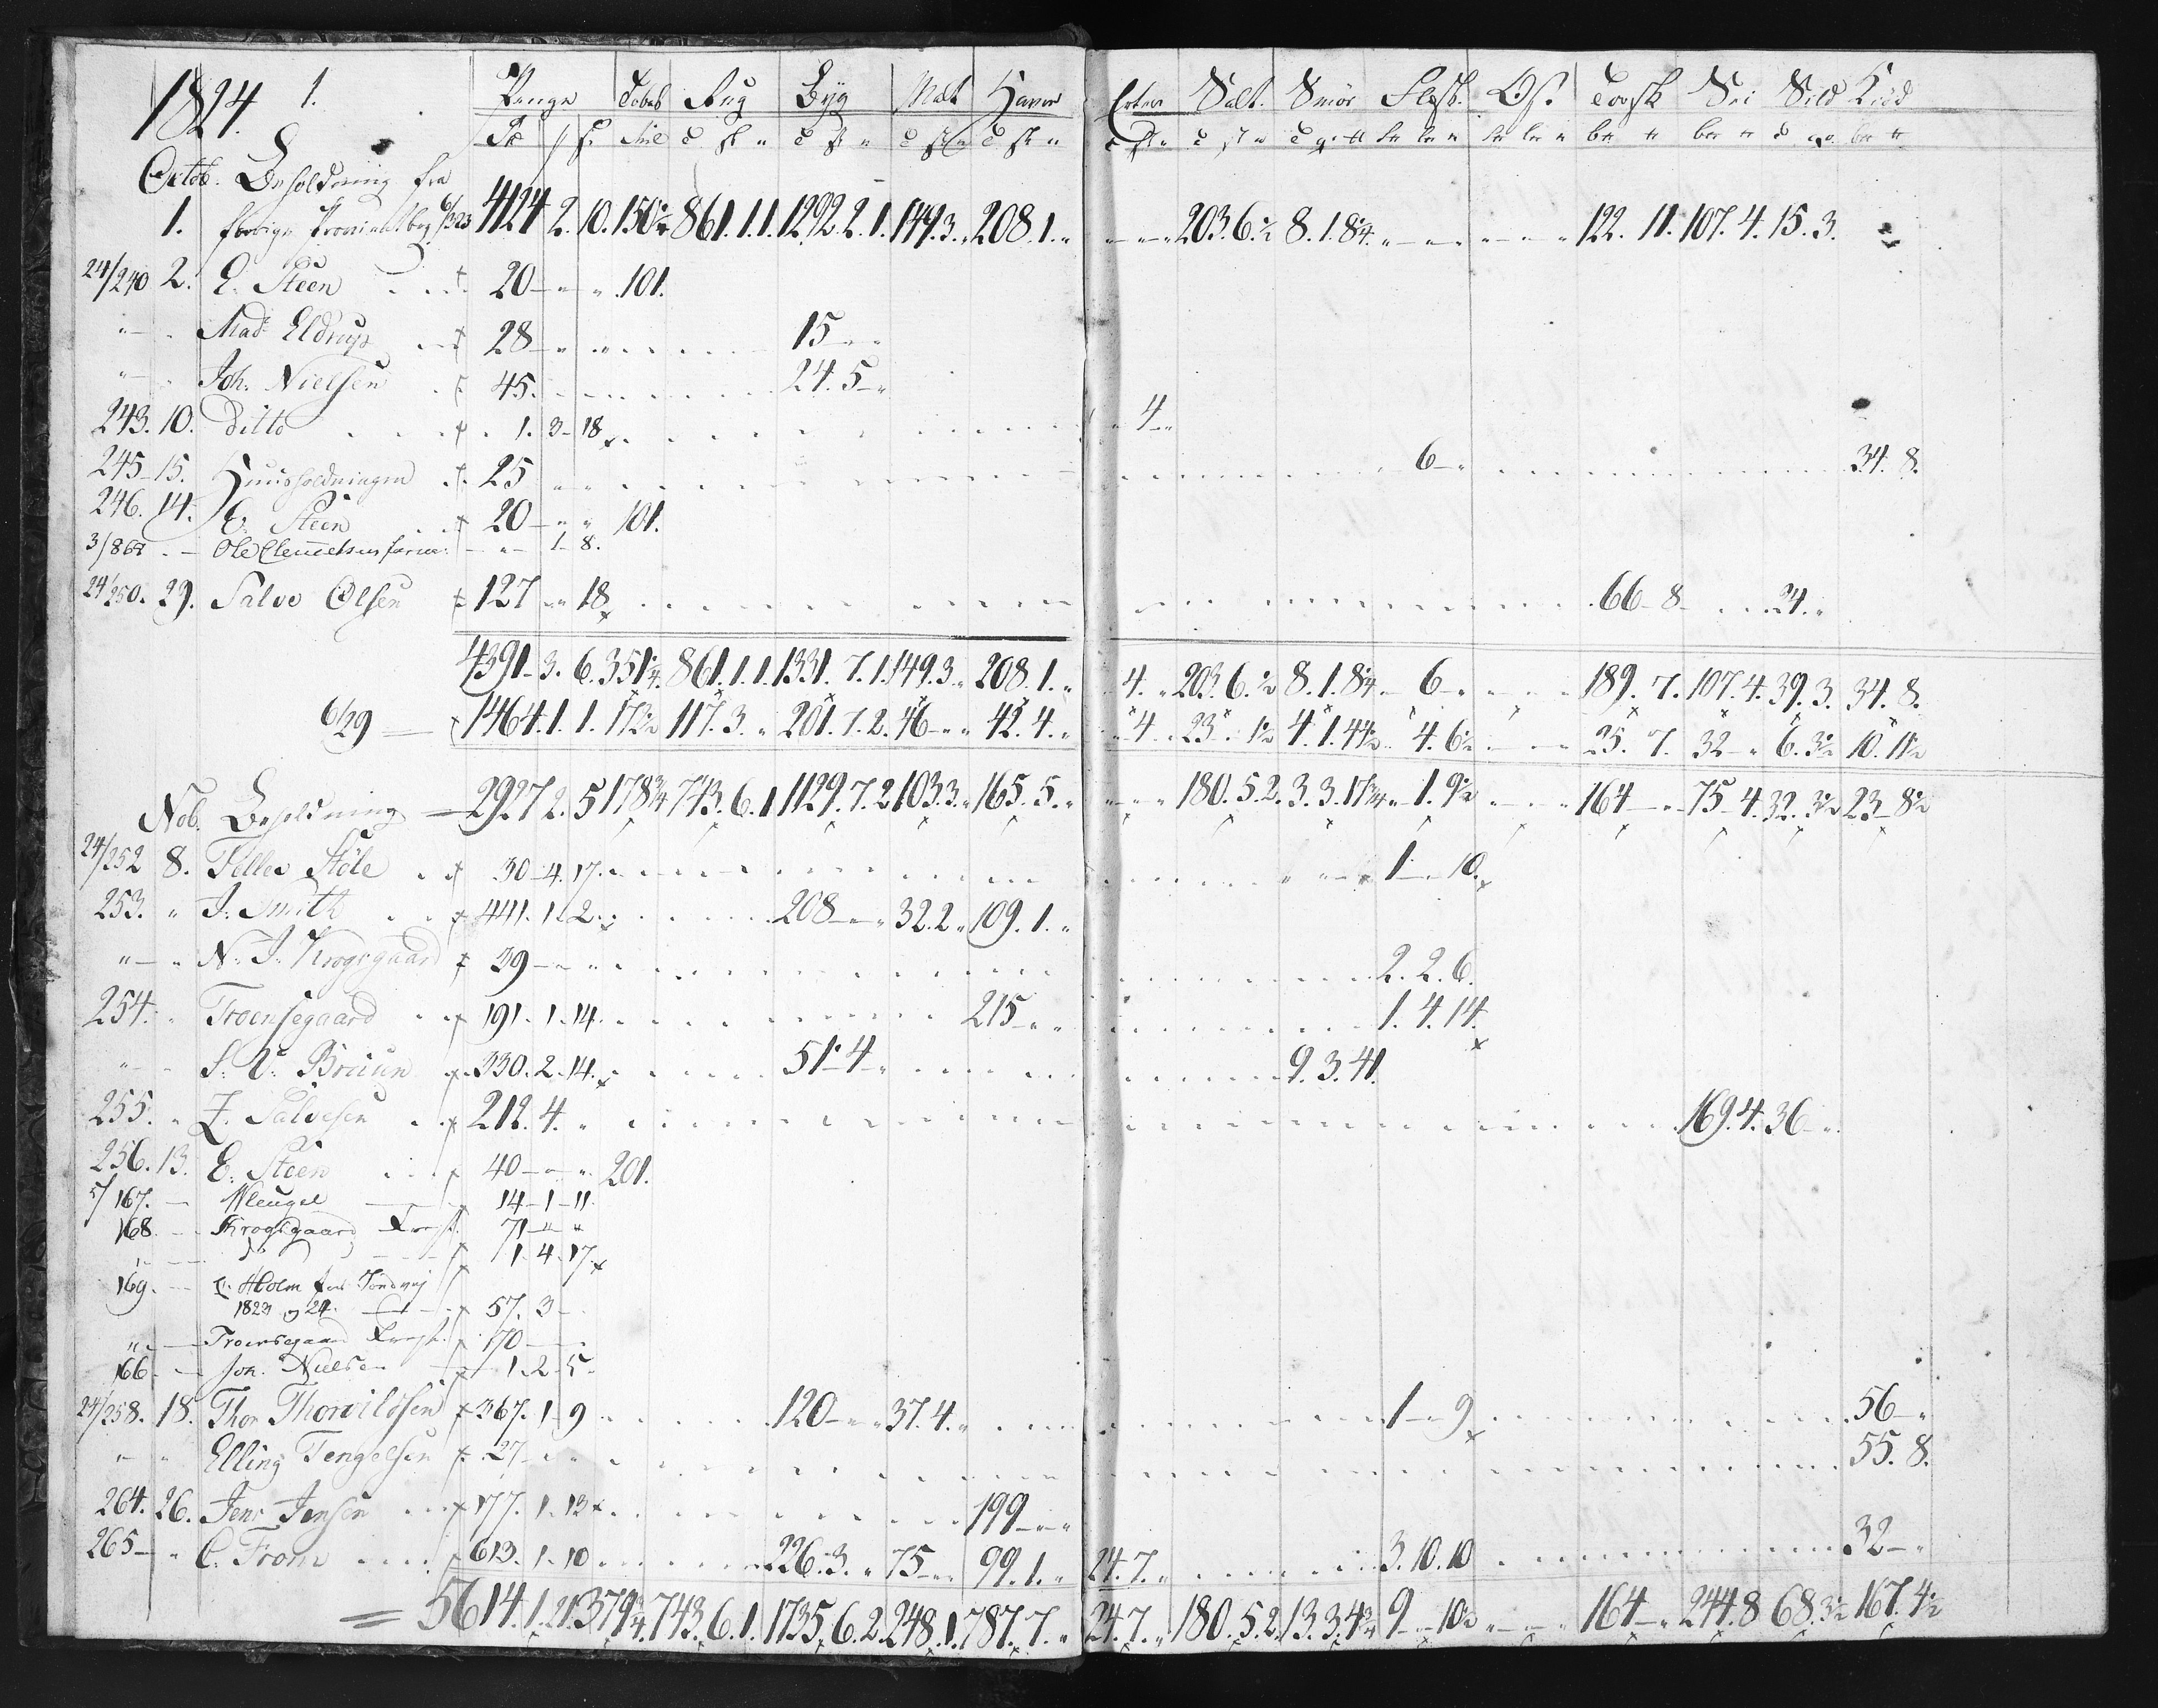 1824. 1. Penge Tobak Rug Byg Malt Havre Erter Salt. Smör Flesk. Ost Torsk Sei Sild Kiød
Octob. Beholdning fra
1. forrige Proviantbog 6/323 4124 2. 10. 150½ 861. 1. 1. 1292. 2. 1. 149. 3. „ 208. 1. „ „ — „ 203. 6. ½ 8. 1. 8¼. 122. 11. 107. 4. 15. 3.
24/240 2. E. Steen 20 — „ „ 101.
„ — „ Mad. Eldrup 28 — „ 15 — „
„ — „ Joh. Nielsen 45. 24. 5 — „
243. 10. Ditto 1. 3 — 18 4 — „
245 — 15. Huusholdningen 25 6 — „ 34. 8.
246. 14. E. Steen 20 — „ „ 101.
3/867 — Ole Clemetsens — „ — 1 — 8.
24/250. 29. Salve Olsen 127 — „ 18 66 — 8 — 24. „
4391 — 3. 6. 351¼. 861. 1. 1. 1331. 7. 1. 149. 3. „ 208. 1. „ 4. „ 203. 6. ½ 8. 1. 8¼ — 6 — „ 189. 7. 107. 4. 39. 3. 34. 8.
6/29 — 1464. 1. 1. 173½ 117. 3. „ 201. 7. 2. 46 — „ „ 42. 4. „ 4. „ 23. „ 1½ 4. 1. 4½ „ 4. 6½ 25. 7. 32 — „ 6. 3½ 10. 11½
Nob. Beholdning — 2927 2. 5 178¾ 743. 6. 1 1129. 7. 2 103. 3. „ 165. 5. „ 180. 5. 2. 3. 3. 17¾ „ 1. 9½ 164 — „ 75 — 4. 32. 3½ 23 — 8½
24/252 8. Telles Støle 30 — 4. 17. 1 — 10.
253. „ J. Smith 441. 1. 2. 208 — „ 32. 2. „ 109. 1. „
„ — „ N. J. Krogsgaard 39 — „ „ 2. 2. 6.
254. „ Troensegaard 191. 1. 14. 215 — „ „ 1. 4. 14.
„ — „ S. V. Bruun 330. 2. 14. 51 — 4 — „ 9. 3. 41.
255. „ Z. Salvesen 212. 4. „ 169. 4. 36 — „
256. 13. E. Steen 40 — „ „ 201.
5/167. — Wleugel 14 — 1 — 11.
168 — Krogsgaard 71 — „ „
„ — Do 1. 4. 17.
169. — Holm for
1823 og 24. 57. 3 —
„ — Troensegaard 170 —
166. — Joh. Nielsen 1 — 2 — 5 —
24/258. 18. Thor Thorvildsen 367. 1 — 9 120 — „ „ 37. 4. „ 1 — „ 9 56 — „
„ — „ Elling Tengelsen 27 — „ „ 55. 8.
264. 26. Jens Jensen 177. 1 — 13 199 — „ „
265 — „ C. From 613. 1 — 10 226. 3. „ 75 — „ 99. 1. „ 24. 7. „ 3. 10. 10 32 — „
= 5614. 1. 21. 379¾. 743. 6. 1. 1735. 6. 2. 248. 1. „ 787. 7. „ 24. 7. „ 180. 5. 2. 13. 3. 4¾ 9 — 10½ 164 — „ 244. 8 68. 3½ 167. 4½